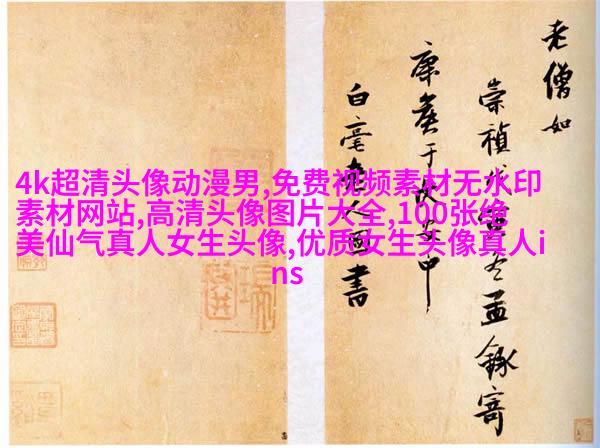 老僧如
崇禎冬孟錄寄
康侯于中
白毫人圖書
4k超清头像动漫男,免费视频素材无水印
素材网站,高清头像图片大全,100张绝
美仙气真人女生头像,优质女生头像真人i
ns